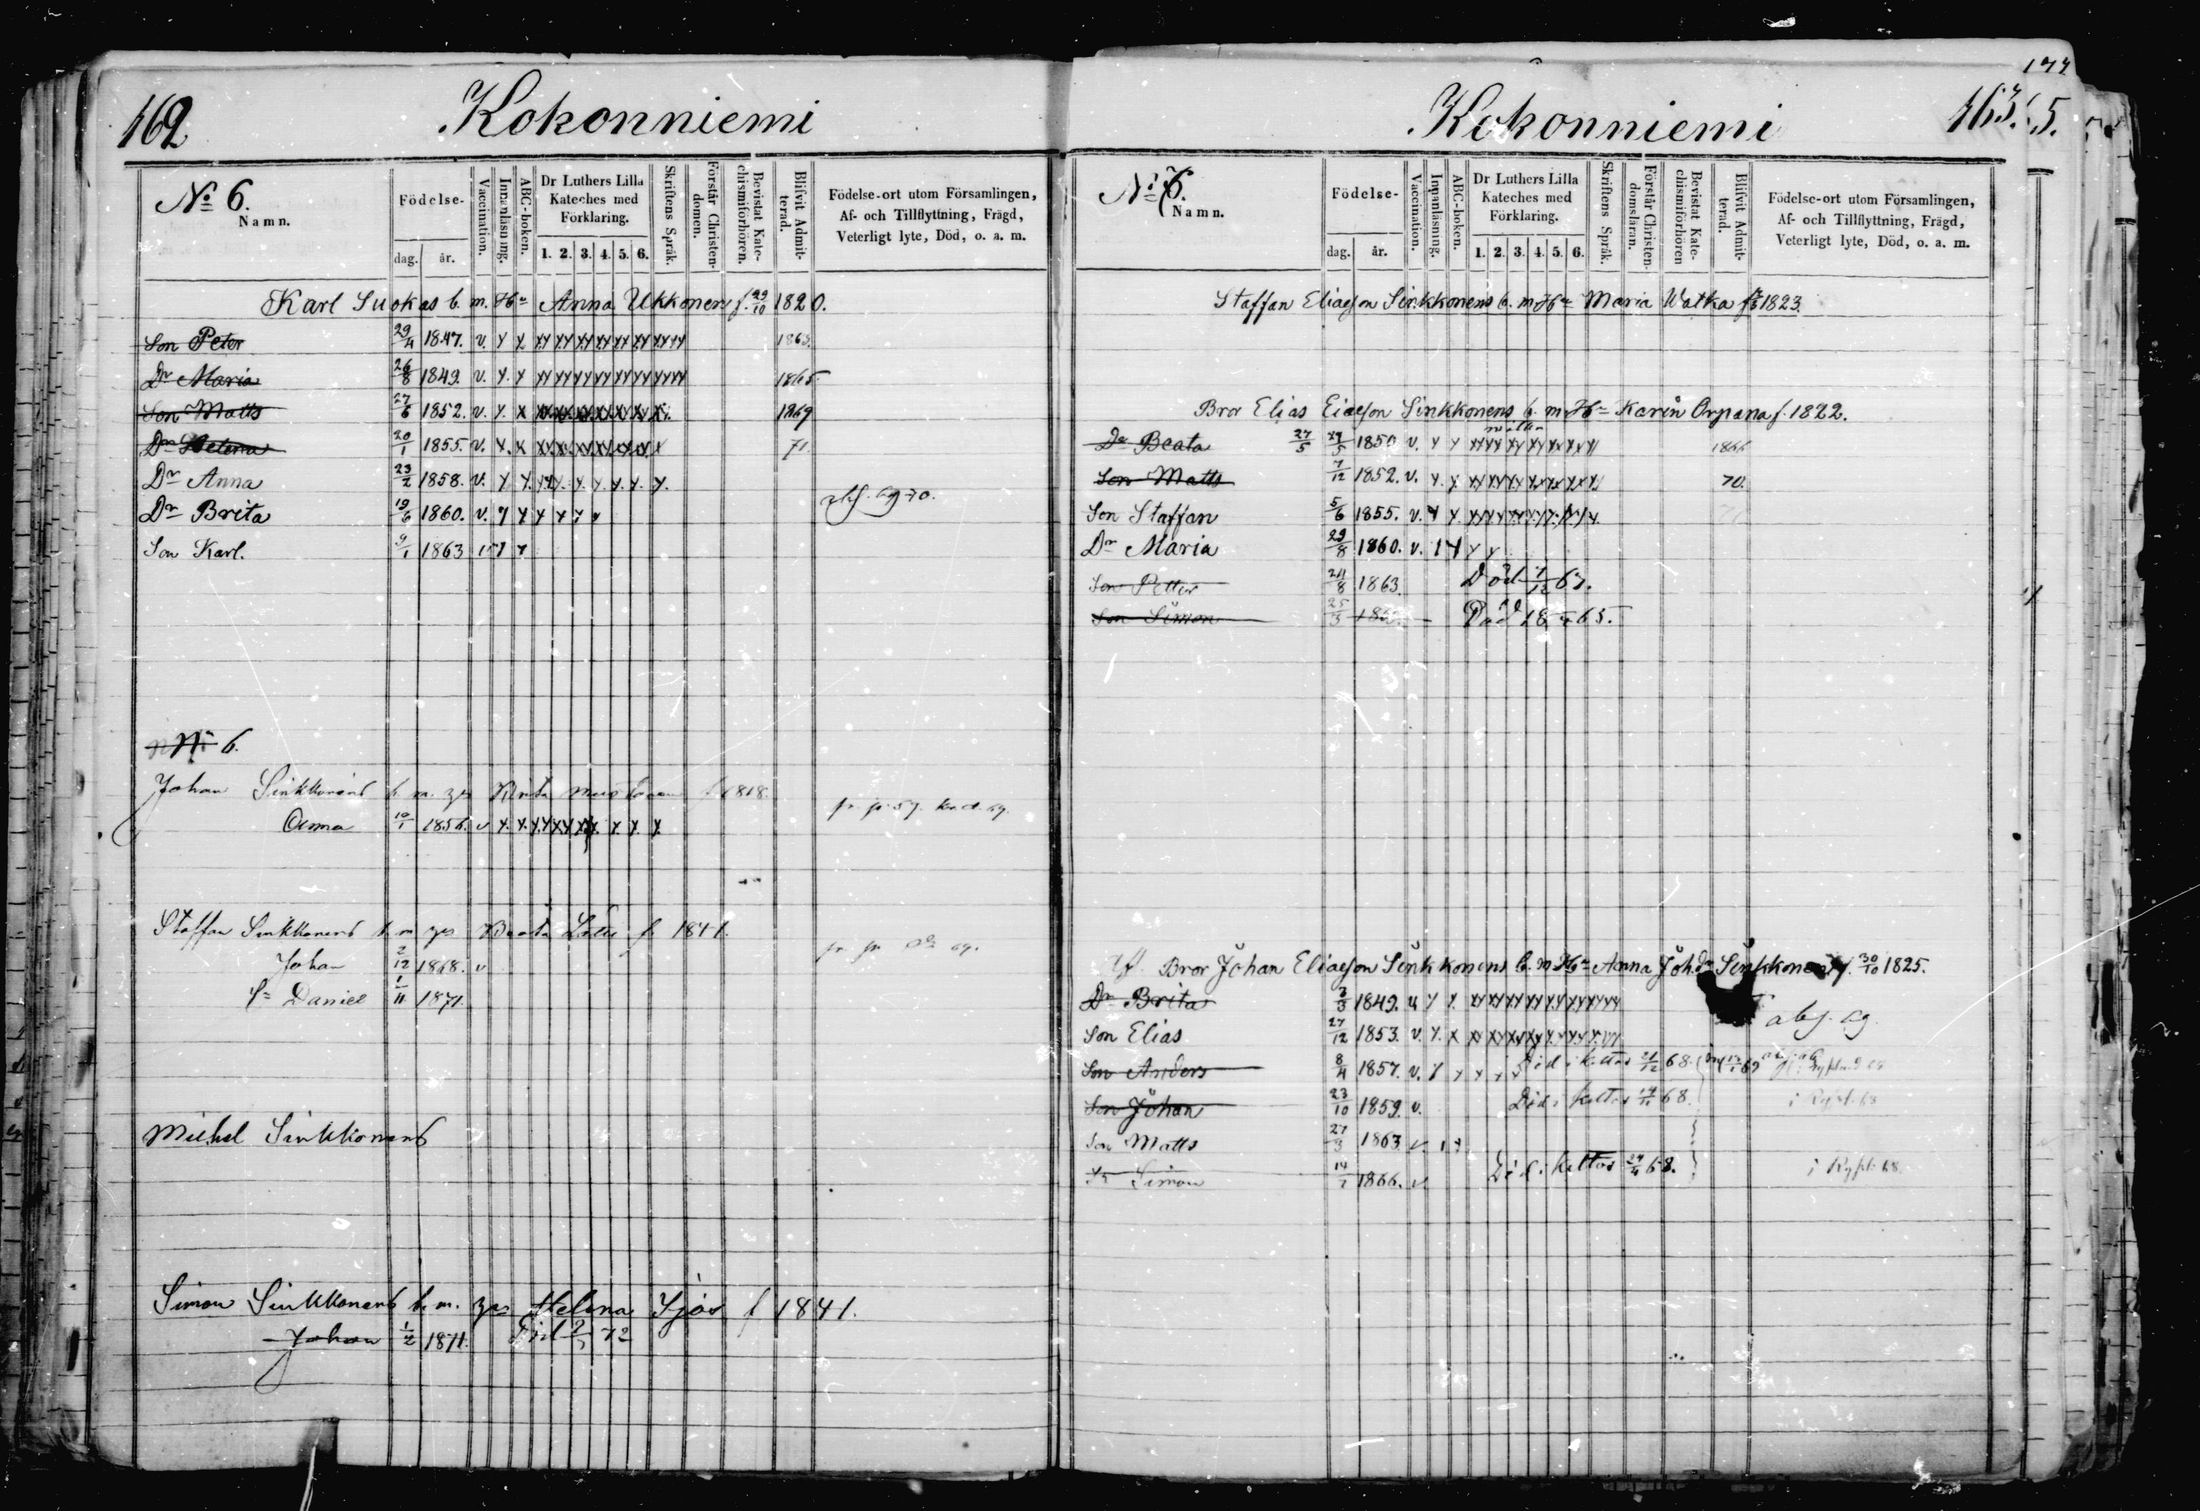 162 Kokonniemi
No 6.
Namn. Födelse- dag. år. Vaccination. Innanläsning. ABC-boken. Dr Luthers Lilla Kateches med Förklaring. 1. 2. 3. 4. 5. 6. Skriftens Språk. Förstår Christendomen. Bevistat Katechismiförhören. Blifvit Admitterad. Födelse-ort utom Församlingen, Af- och Tillflyttning, Frägd, Veterligt lyte, Död, o. a. m.
Karl Suokas b. m. Hu Anna Ukkonen f. 29/10 1820.
Son Peter 29/4 1847. v. 1865.
Dr Maria 26/8 1849. v. 1865.
Son Matts 27/6 1852. v. 1869
Dr Helena 20/1 1855. v. 71.
Dr Anna 23/2 1858. v.
Dr Brita 19/6 1860. v.
Son Karl. 9/1 1863
No 6.
Johan Sinkkonens b. m. f 1818.
Anna 10/1 1856. v
Staffan Sinkkonens b m Beata f. 1841.
Johan 2/12 1868. v
Sn Daniel 1/11 1871
Michel Sinkkonens
Simon Sinkkonens b. m. Helena f 1841.
Johan 1/2 1871. Död 72
177
Kokonniemi 163. 5.
No 6.
Namn. Födelse- dag. år. Vaccination. Innanläsning. ABC-boken. Dr Luthers Lilla Kateches med Förklaring. 1. 2. 3. 4. 5. 6. Skriftens Språk. Förstår Christendomsläran. Bevistat Katechismiförhören Blifvit Admitterad. Födelse-ort utom Församlingen, Af- och Tillflyttning, Frägd, Veterligt lyte, Död, o. a. m.
Staffan Eliasson Sinkkonens b. m. Hu Maria Watka 1823.
Bror Elias Eliasson Sinkkonens b. m Hu Karin Orpana f. 1822.
Dr Beata 27/5 1850 v. 1866
Son Matts 7/12 1852. v. 70.
Son Staffan 5/6 1855. v.
Dr Maria 29/8 1860. v.
Son Petter 24/8 1863. Död 7/12 67.
Son Simon 25/3 Död 18 65.
Bror Johan Eliasson Sinkkonens b. m Hu Anna Johdr Sinkkonen f. 30/10 1825.
Dr Brita 3/3 1849.
Son Elias 27/12 1853. v.
Son Anders 8/4 1857. v. Död i kottas 21/12 68.
Son Johan 23/10 1859. v. Död i kottas 68.
Son Matts 27/3 1863
Sn Simon 14/1 1866. v Död i kottas 24/4 68.